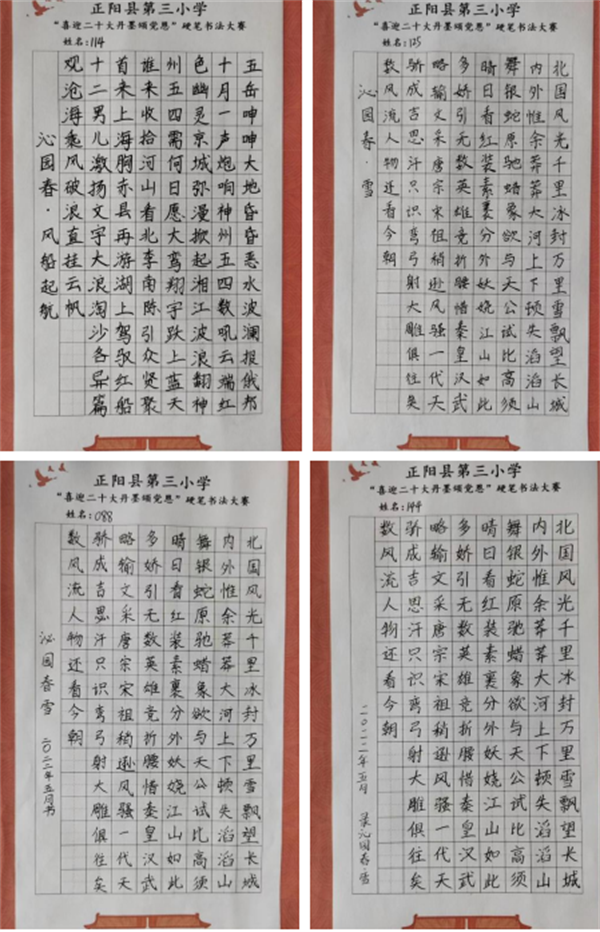 正阳县第三小学
“喜迎二十大丹墨颂党恩”硬笔书法大赛
姓名:114
五岳呻呻大地昏昏恶水波澜报俄邦
十月一声炮响神州五四数吼云端红
色幽灵京城弥漫掀起湘江波浪翻神
州五四需何日愿大鸾翔宇跃上蓝天
谁来收拾河山看北李南陈引众贤聚
首来上海胸赤县再游湖上驾驭红船
十二男儿激扬文字大浪淘沙各异篇
观沧海乘风破浪直挂云帆
沁园春·风船起航
正阳县第三小学
“喜迎二十大丹墨颂党恩”硬笔书法大赛
姓名:125
北国风光千里冰封万里雪飘望长城
内外惟余莽莽大河上下顿失滔滔山
舞银蛇原驰蜡象欲与天公试比高须
晴日看红装素裹分外妖娆江山如此
多娇引无数英雄竞折腰惜秦皇汉武
略输文采唐宗宋祖稍逊风骚一代天
骄成吉思汗只识弯弓射大雕俱往矣
数风流人物还看今朝
沁园春·雪
正阳县第三小学
“喜迎二十大丹墨颂党恩”硬笔书法大赛
姓名:088
北国风光千里冰封万里雪飘望长城
内外惟余莽莽大河上下顿失滔滔山
舞银蛇原驰蜡象欲与天公试比高须
晴日看红装素裹分外妖娆江山如此
多娇引无数英雄竞折腰惜秦皇汉武
略输文采唐宗宋祖稍逊风骚一代天
骄成吉思汗只识弯弓射大雕俱往矣
数风流人物还看今朝
沁园春雪 二〇二二年五月书
正阳县第三小学
“喜迎二十大丹墨颂党恩”硬笔书法大赛
姓名:144
北国风光千里冰封万里雪飘望长城
内外惟余莽莽大河上下顿失滔滔山
舞银蛇原驰蜡象欲与天公试比高须
晴日看红装素裹分外妖娆江山如此
多娇引无数英雄竞折腰惜秦皇汉武
略输文采唐宗宋祖稍逊风骚一代天
骄成吉思汗只识弯弓射大雕俱往矣
数风流人物还看今朝
二〇二二年五月 录沁园春雪